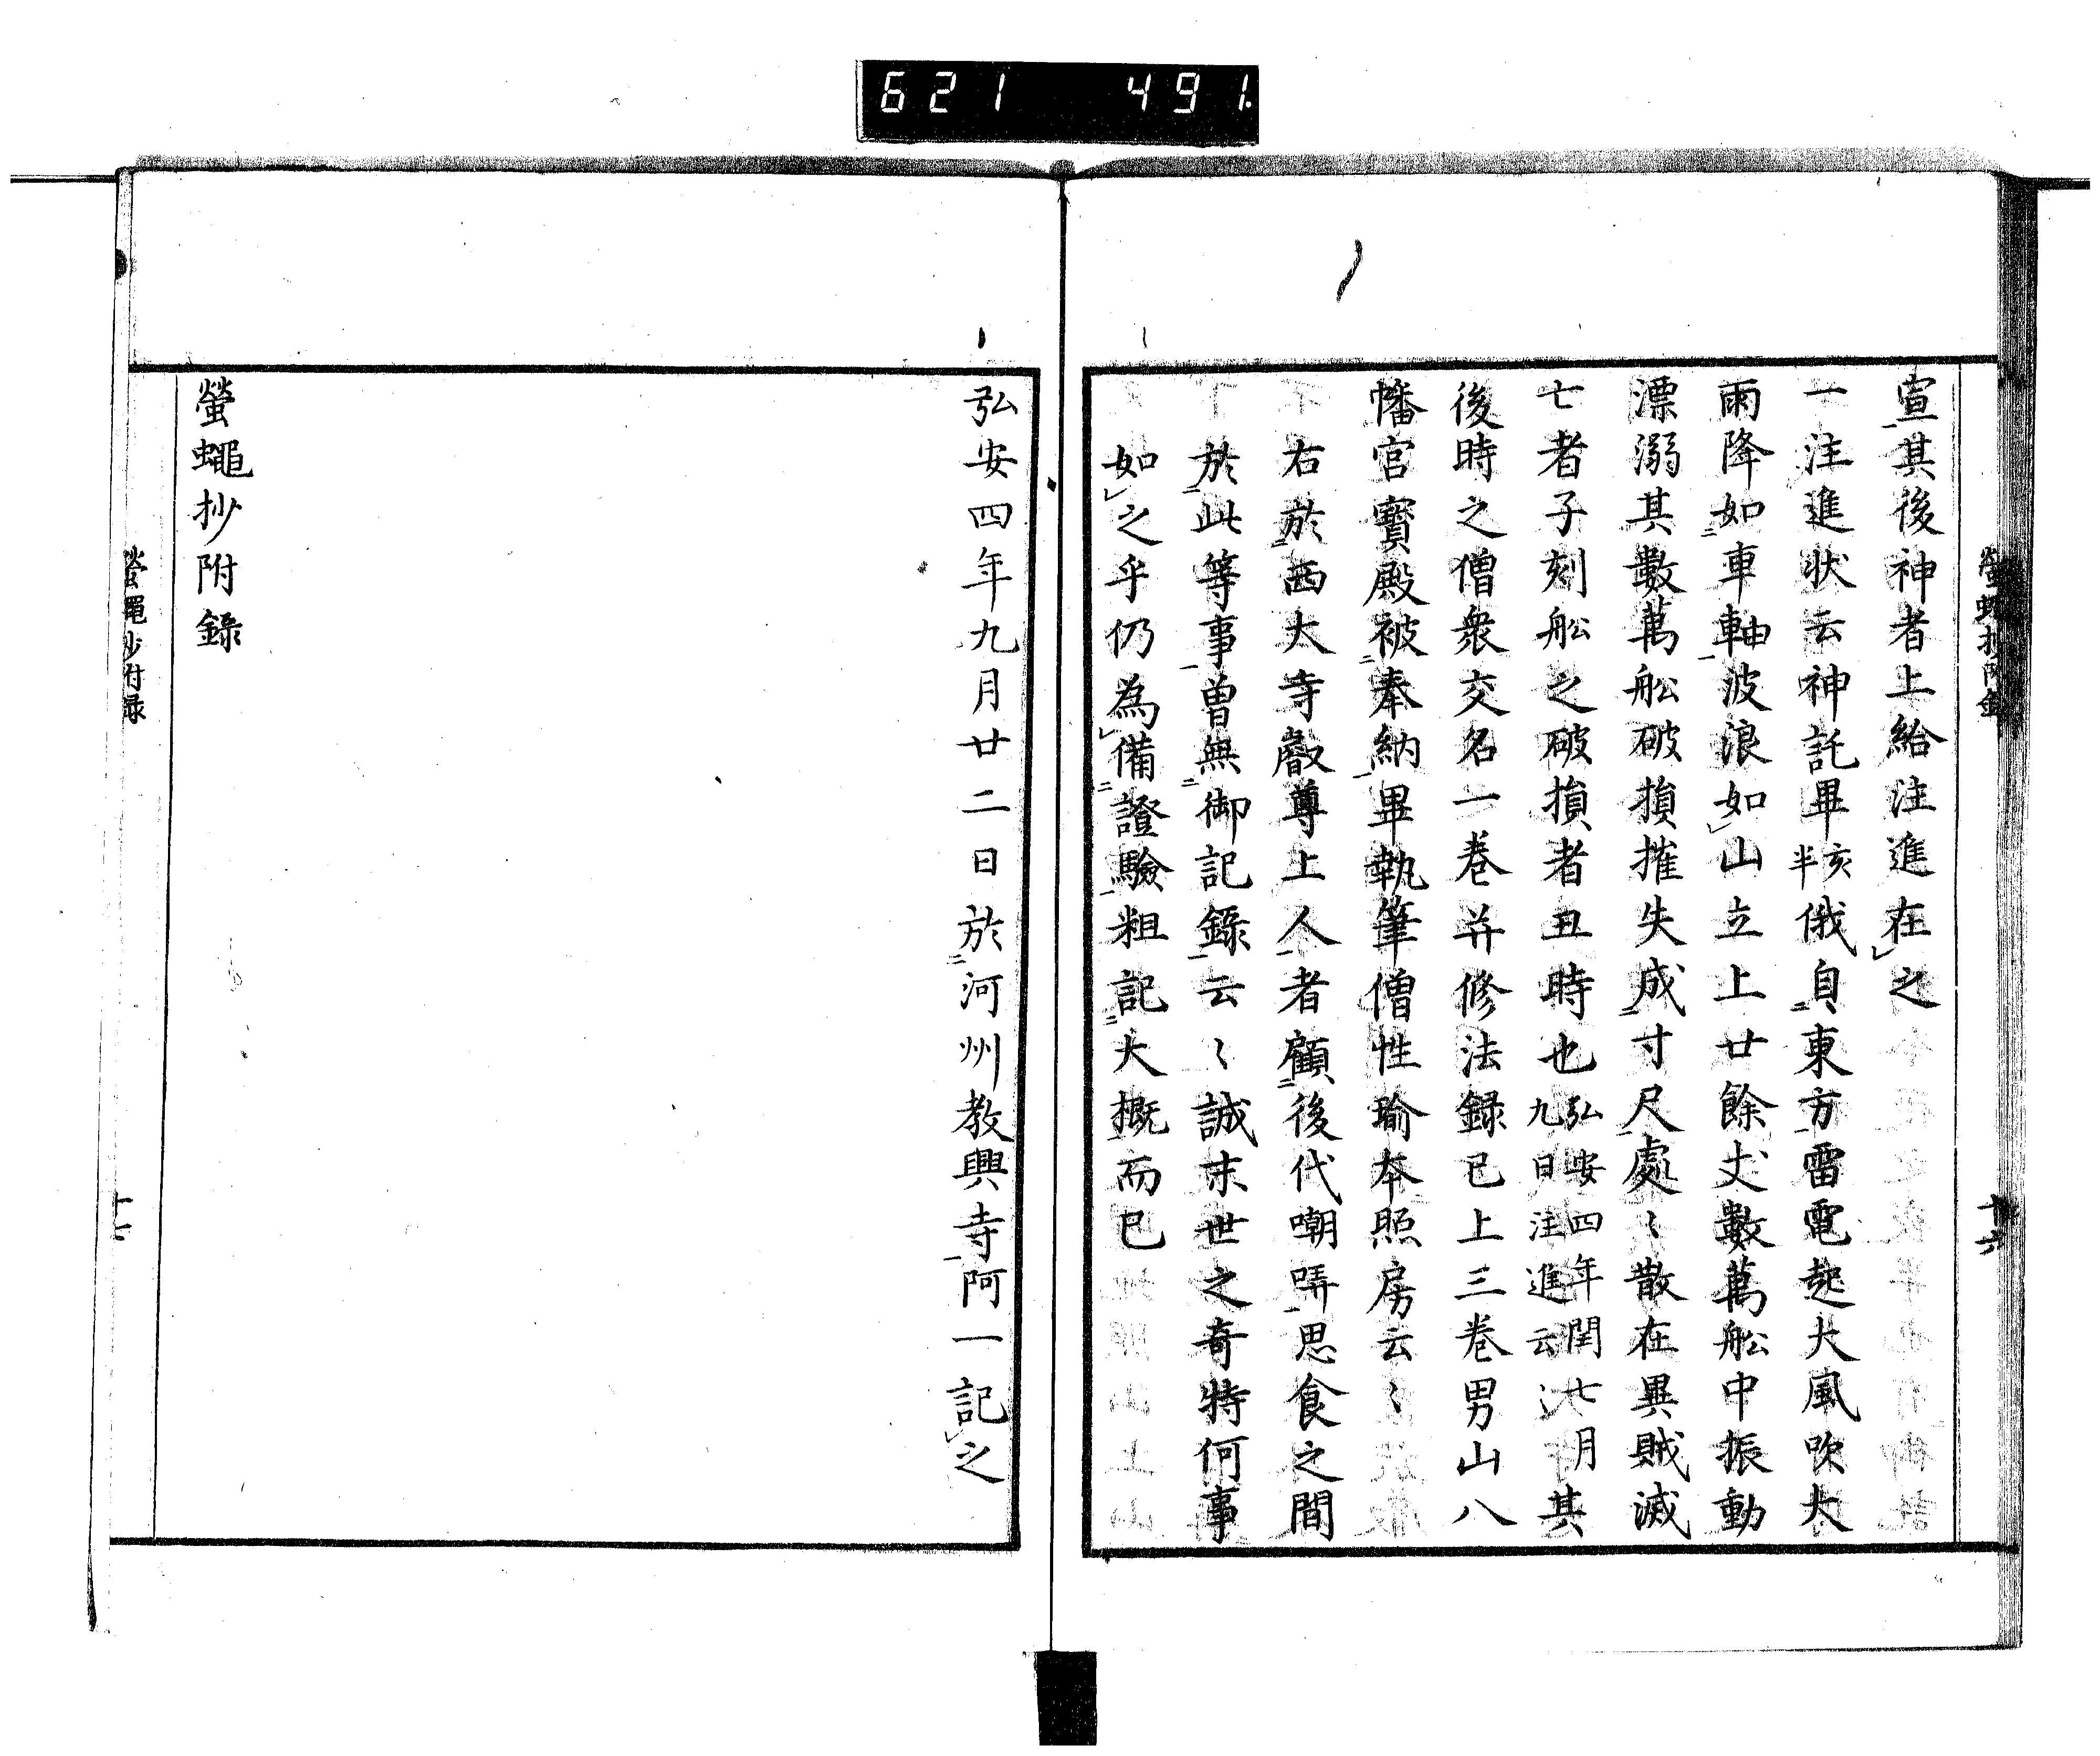 621 491.
宣其後神者上給注進在之
一注進状云神託畢亥半俄自東方雷電起大風吹大
雨降如車軸波浪如山立上廿餘丈數萬舩中振動
漂溺其數萬舩破損摧失成寸尺處〻散在異賊滅
七者子刻舩之破損者丑時也弘安四年閏七月九日注進云〻其
後時之僧衆交名一卷并修法録已上三卷男山八
幡宮寳殿被奉納畢執筆僧性瑜本照房云〻
右於西大寺叡尊上人者顧後代嘲哢思食之間
於此等事曽無御記錄云〻誠末世之奇特何事
如之乎仍為備證驗粗記大概而已
弘安四年九月廿二日於河州教興寺阿一記之
螢蠅抄附錄